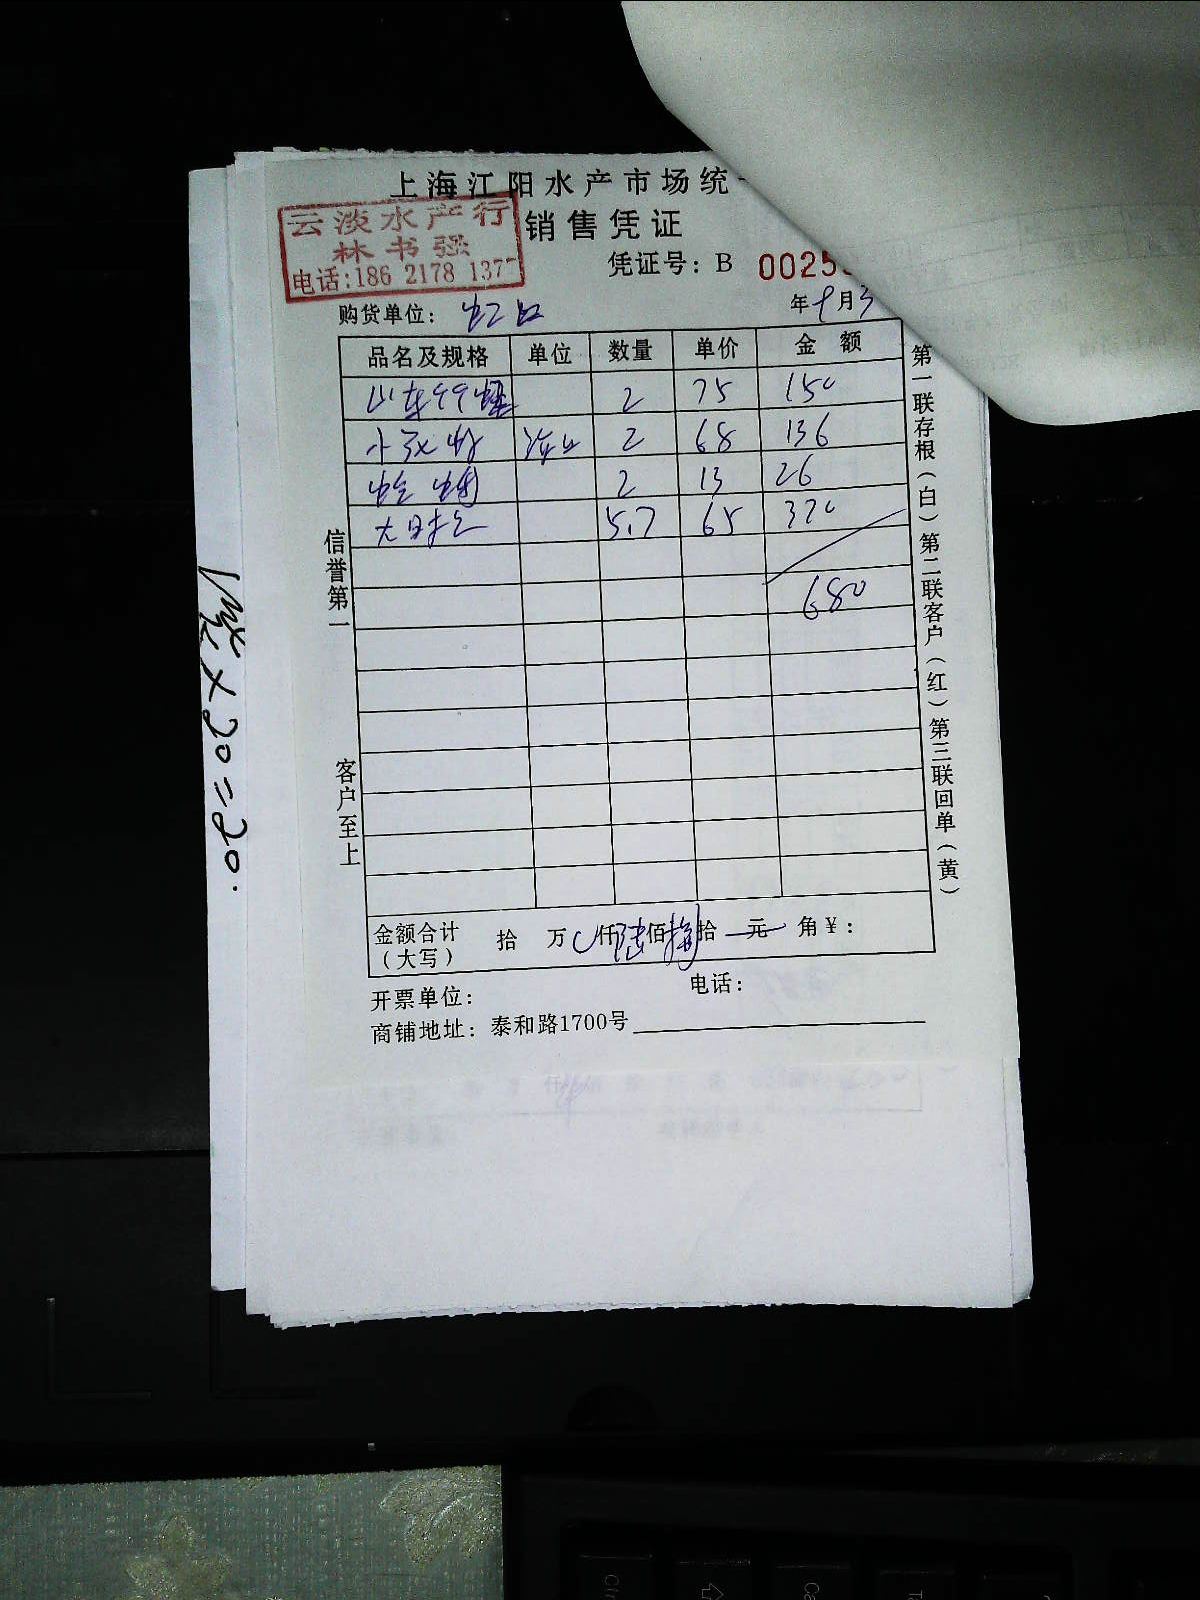 上海江阳水产市场统
销售凭证
云淡水产行
林书强
电话:186 2178 137
凭证号: B 0025
购货单位: 虹口
年 月 3
品名及规格 单位 数量 单价 金 额
山东 2 75 150
小 2 68 136
2 13 26
大 5.7 65 370
680
信誉第一
客户至上
第一联存根(白)第二联客户(红)第三联回单(黄)
金额合计(大写) 拾 万 仟陆佰捌拾 元 角 ¥:
开票单位: 电话:
商铺地址: 泰和路1700号
×20=20.